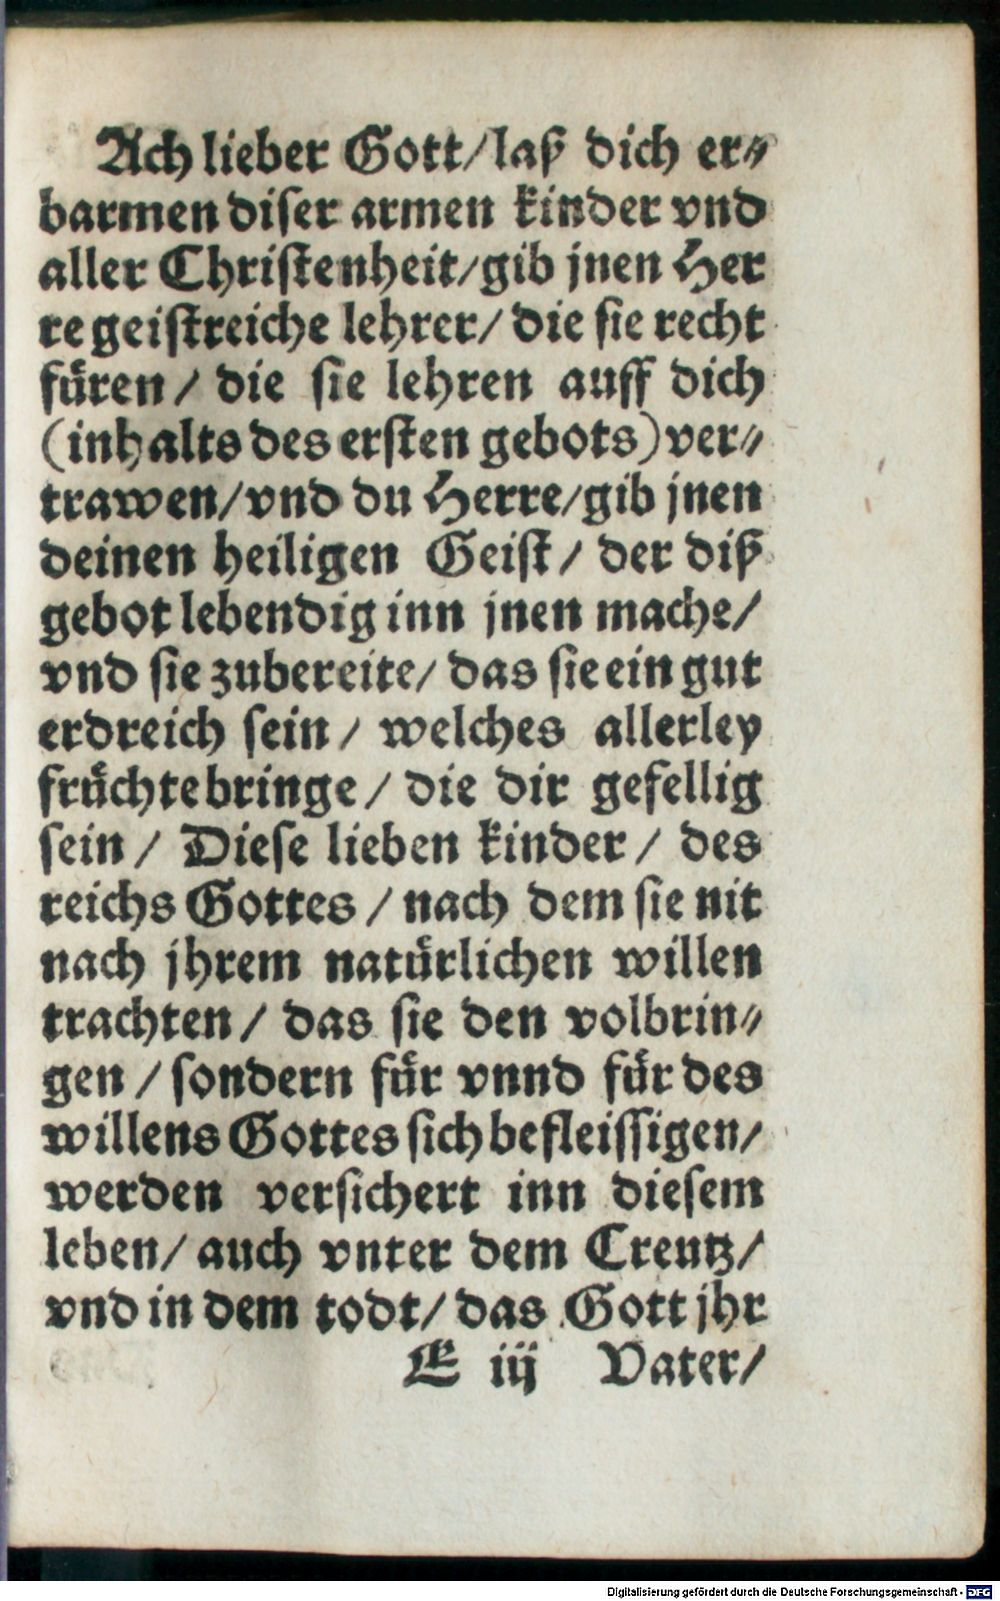 Ach lieber Gott/laß dich er⸗
barmen diser armen kinder vnd
aller Christenheit/gib jnen Her
re geistreiche lehrer/ die sie recht
füren/ die sie lehren auff dich
(inhalts des ersten gebots) ver⸗
trawen/vnd du Herre/gib jnen
deinen heiligen Geist/ der diß
gebot lebendig inn jnen mache/
vnd sie zubereite/ das sie ein gut
erdreich sein/ welches allerley
früchte bringe/ die dir gefellig
sein/ Diese lieben kinder/ des
reichs Gottes/ nach dem sie nit
nach jhrem natürlichen willen
trachten/ das sie den volbrin⸗
gen/ sondern für vnnd für des
willens Gottes sich befleissigen/
werden versichert inn diesem
leben/ auch vnter dem Creutz/
vnd in dem todt/ das Gott jhr
E iij Vater/
Digitalisierung gefördert durch die Deutsche Forschungsgemeinschaft - DFG